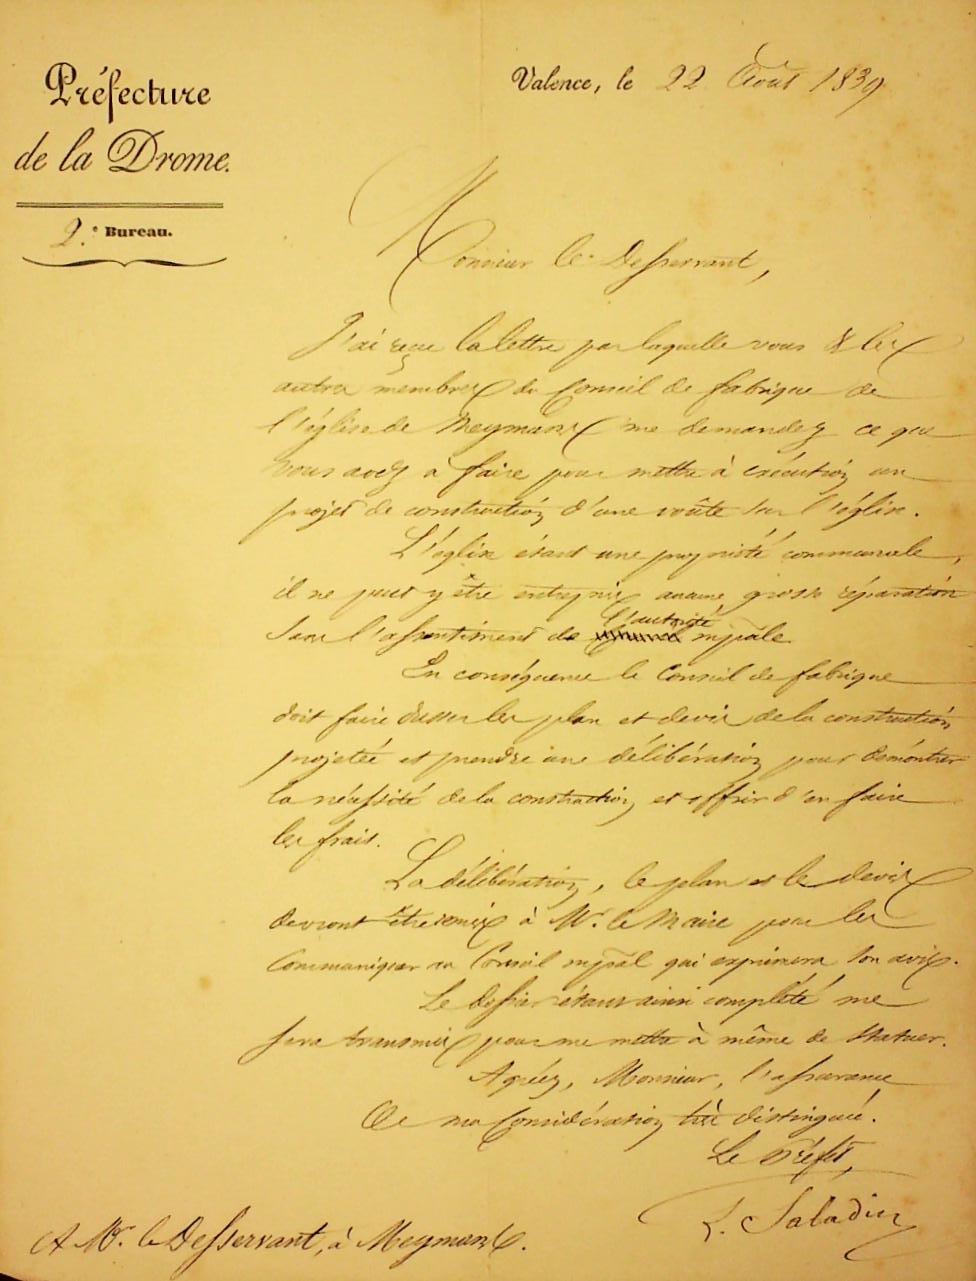 Préfecture
de la Drome.
2.e Bureau.
Valence, le 22 Août 1839
Monsieur le Desservant,
J'ai reçu la lettre par laquelle vous & les
autres membres du Conseil de fabrique de
l'église de Meymans me demandez ce que
vous avez à faire pour mettre à exécution un
projet de construction d'une voûte sur l'église.
L'église étant une propriété communale,
il ne peut y être entrepris aucune grosse réparation
sans l'assentiment de l'autorité mpale.
En conséquence le Conseil de fabrique
doit faire dresser les plan et devis de la construction
projetée et prendre une délibération pour démontrer
la nécessité de la construction et offrir d'en faire
les frais.
La délibération, le plan et le devis
devront être remis à Mr. le Maire pour les
communiquer au Conseil mpal qui exprimera son avis.
Le dossier étant ainsi complété me
sera transmis pour me mettre à même de statuer.
Agréez, Monsieur, l'assurance
de ma considération très distinguée.
Le Préfet,
L. Saladin
A Mr. le Desservant, à Meymans.